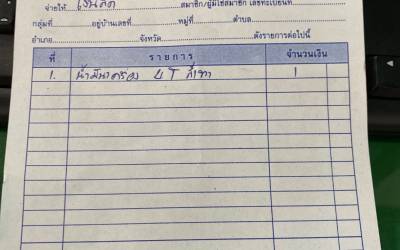 จ่ายให้ เงินสด สมาชิก/ผู้มิใช่สมาชิก เลขทะเบียนที่
กลุ่มที่ อยู่บ้านเลขที่ หมู่ที่ ตำบล
อำเภอ จังหวัด ดังรายการต่อไปนี้
ที่ รายการ จำนวนเงิน
1. น้ำมันเครื่อง 4T 1